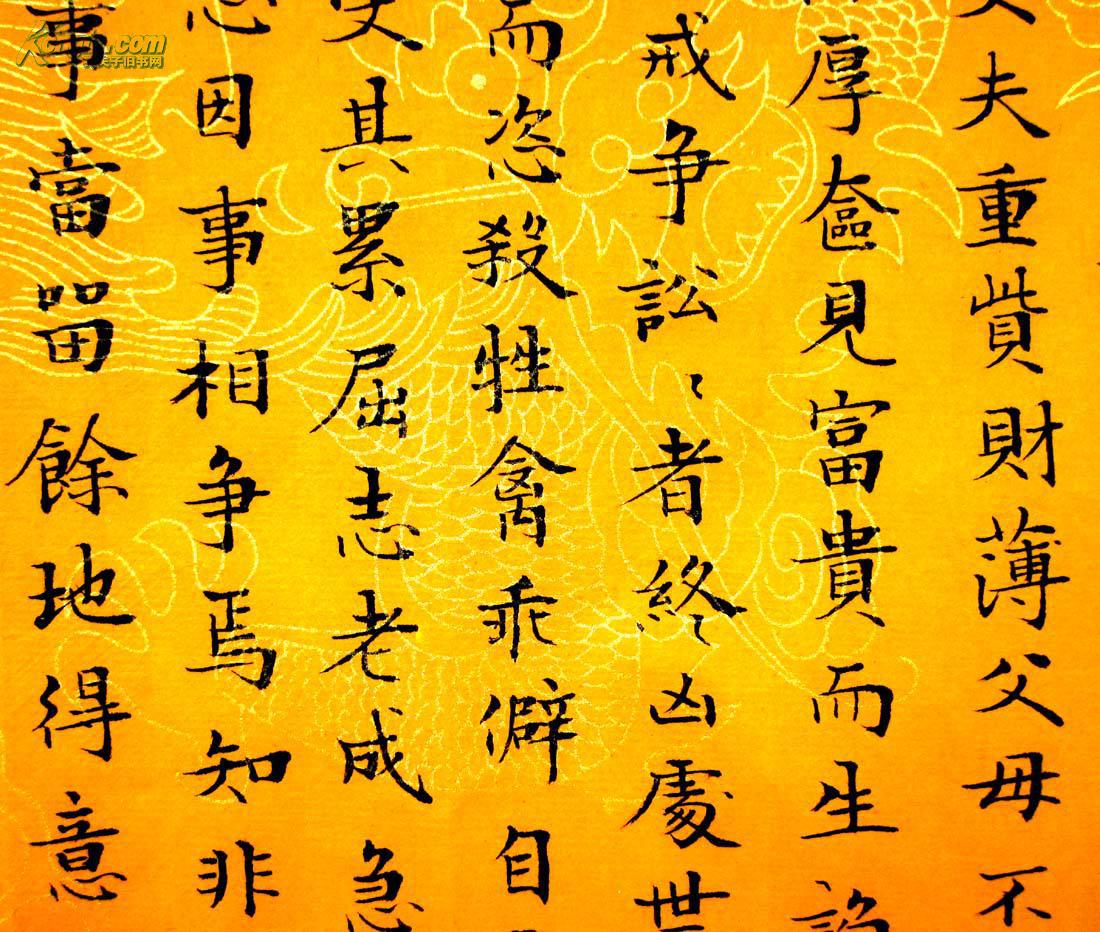 夫重貲財薄父母不
厚奩見富貴而生諂
戒争訟〻者終凶處世
而恣殺牲禽乖僻自
受其累屈志老成急
因事相争焉知非
事當留餘地得意
.com
夫子旧书网